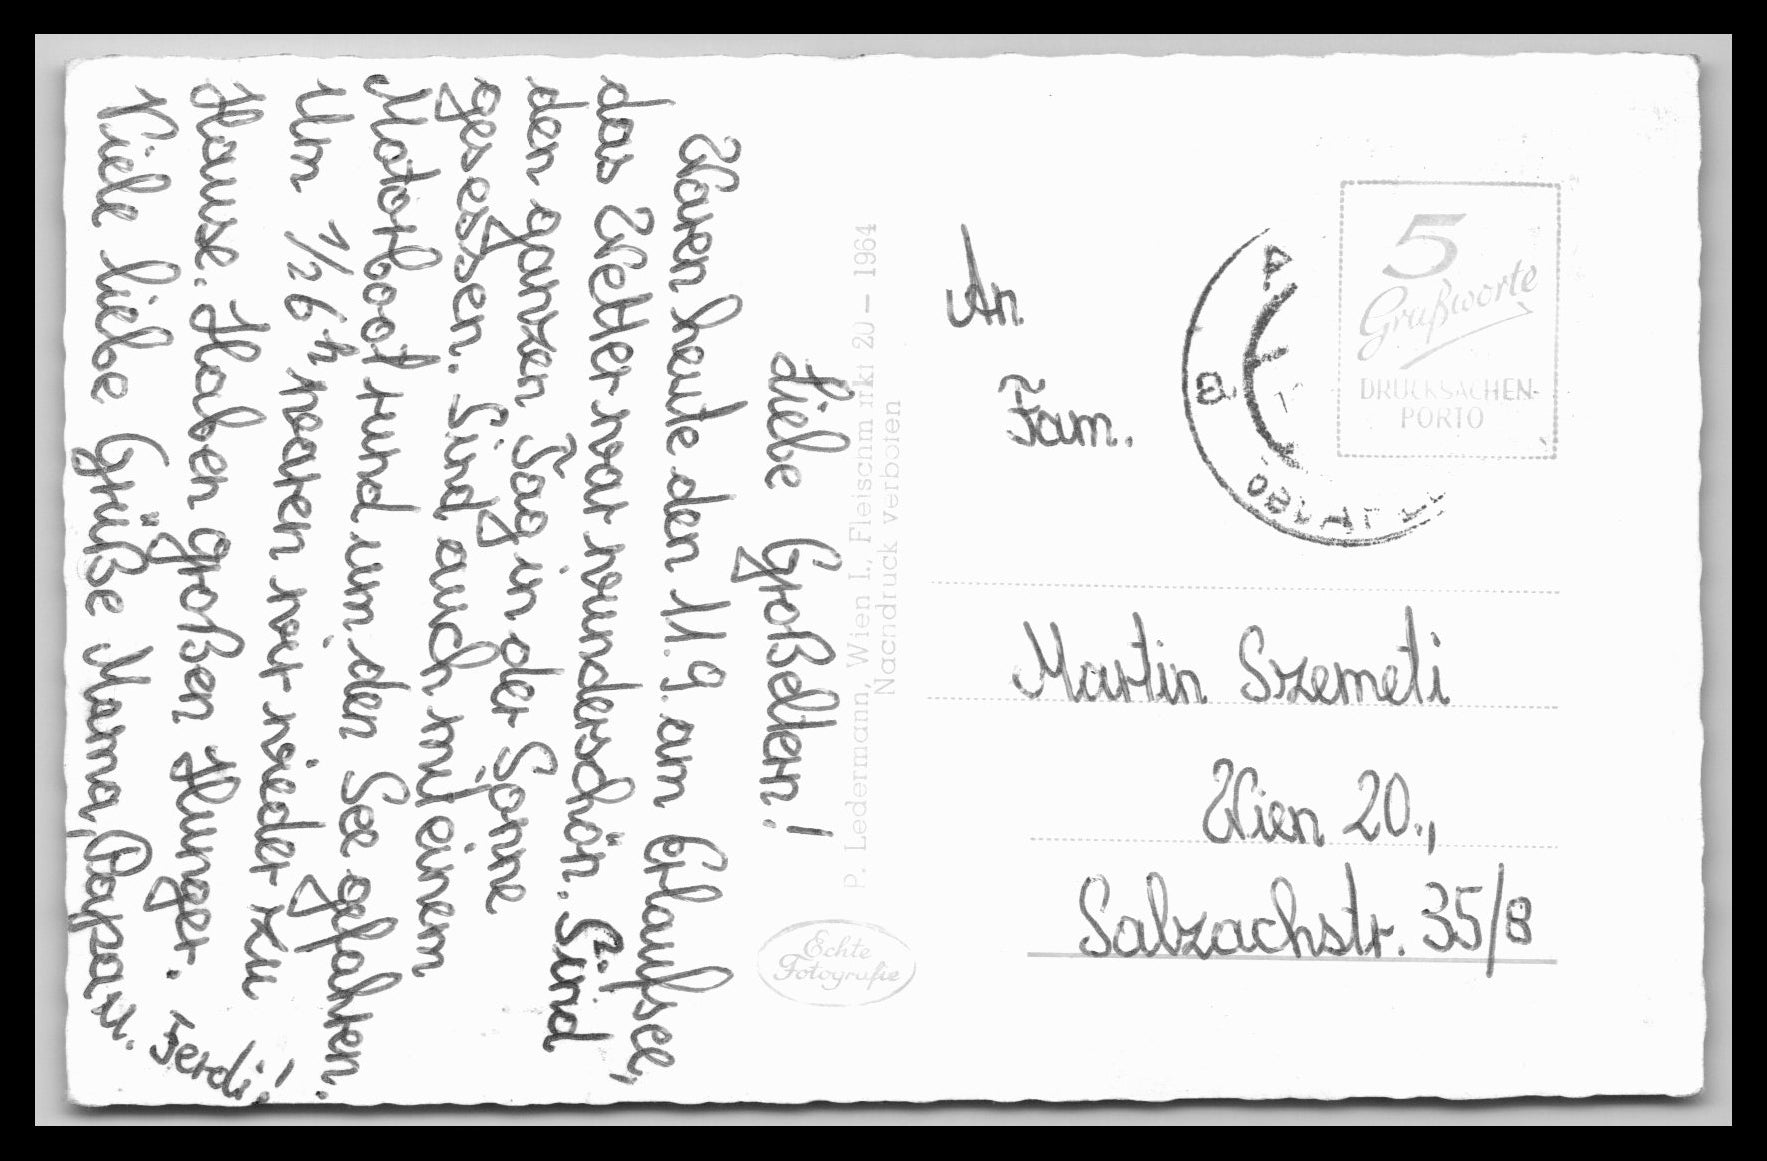 Liebe Großeltern!
Waren heute den 11.9. am Erlaufsee,
das Wetter war wunderschön. Sind
den ganzen Tag in der Sonne
gesessen. Sind auch mit einem
Motorboot rund um den See gefahren.
Um 1/2 6h waren wir wieder zu
Hause. Haben großen Hunger.
Viele liebe Grüße Mama, Papa u. Ferdi!
P. Ledermann, Wien I., Fleischmarkt 20 – 1964
Nachdruck verboten
Echte
Fotografie
An
Fam.
Martin Szemeti
Wien 20.,
Salzachstr. 35/8
5
Grußworte
DRUCKSACHEN-
PORTO